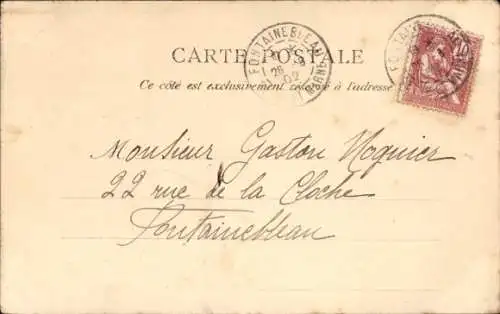 CARTE POSTALE
Ce côté est exclusivement réservé à l'adresse
FONTAINEBLEAU
02
Monsieur Gaston Noguier
22 rue de la Cloche
Fontainebleau